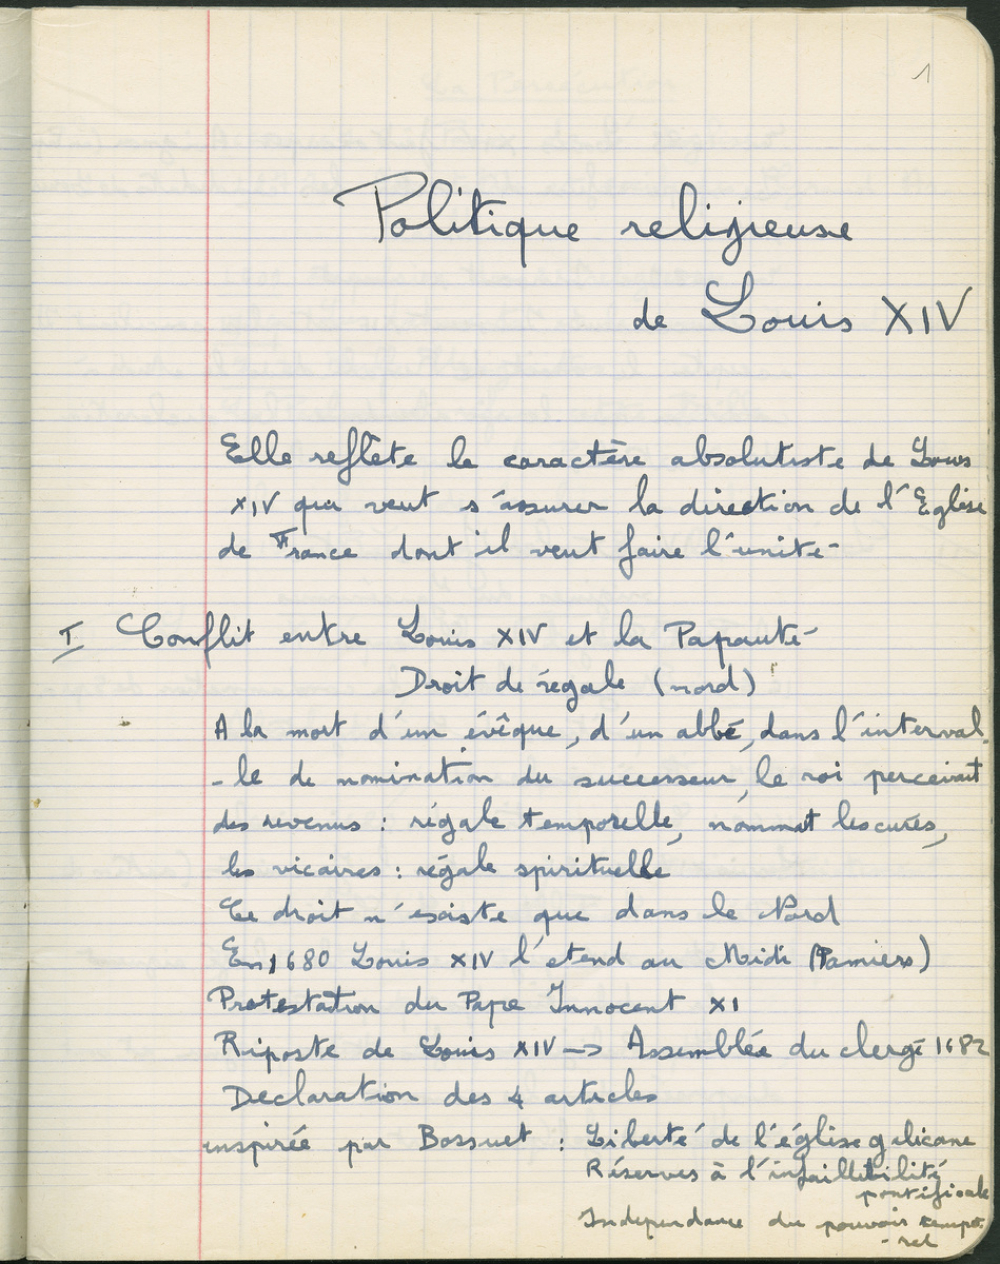 1
Politique religieuse
de Louis XIV
Elle reflète le caractère absolutiste de Louis
XIV qui veut s'assurer la direction de l'Eglise
de France dont il veut faire l'unité
I Conflit entre Louis XIV et la Papauté
Droit de régale (nord)
A la mort d'un évêque, d'un abbé, dans l'interval
-le de nomination du successeur, le roi percevait
des revenus : régale temporelle, nommat les curés,
les vicaires : régale spirituelle
Ce droit n'existe que dans le Nord
En 1680 Louis XIV l'étend au Midi (Pamiers)
Protestation du Pape Innocent XI
Riposte de Louis XIV -> Assemblée du clergé 1682
Déclaration des 4 articles
inspirée par Bossuet : Liberté de l'église galicane
Réserves à l'infaillibilité
pontificale
Independance du pouvoir tempo
-rel